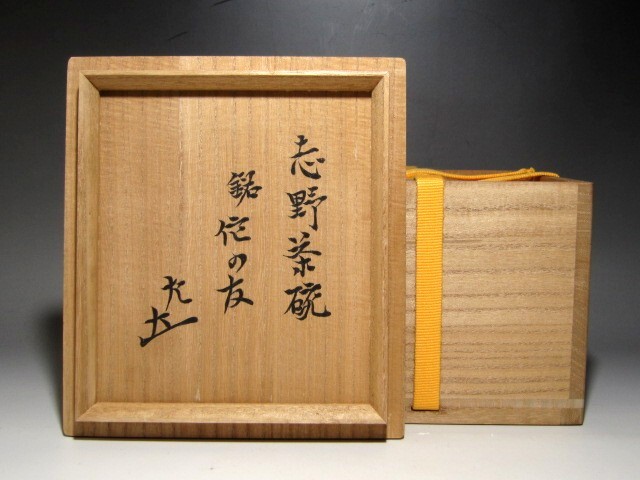 志野茶碗
銘佗の友